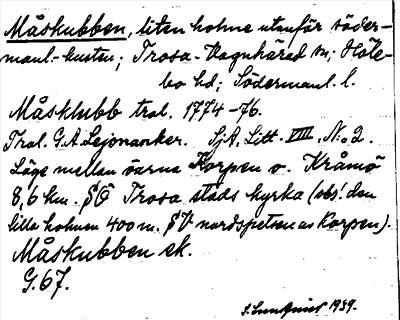 Måskubben, liten holme utanför söder-
manl.-kusten; Trosa-Vagnhärad sn; Höle-
bo hd; Södermanl. l.
Måsklubb tral. 1774-76.
Tral. G.A. Lejonanker. SjA, Litt. VIII, No 2.
Läge mellan öarna Korpen o. Kråmö
8,6 km. SÖ Trosa stads kyrka (obs! den
lilla holmen 400 m. SV nordspetsen av Korpen).
Måskubben ek.
G. 67.
S. Lundqvist 1939.